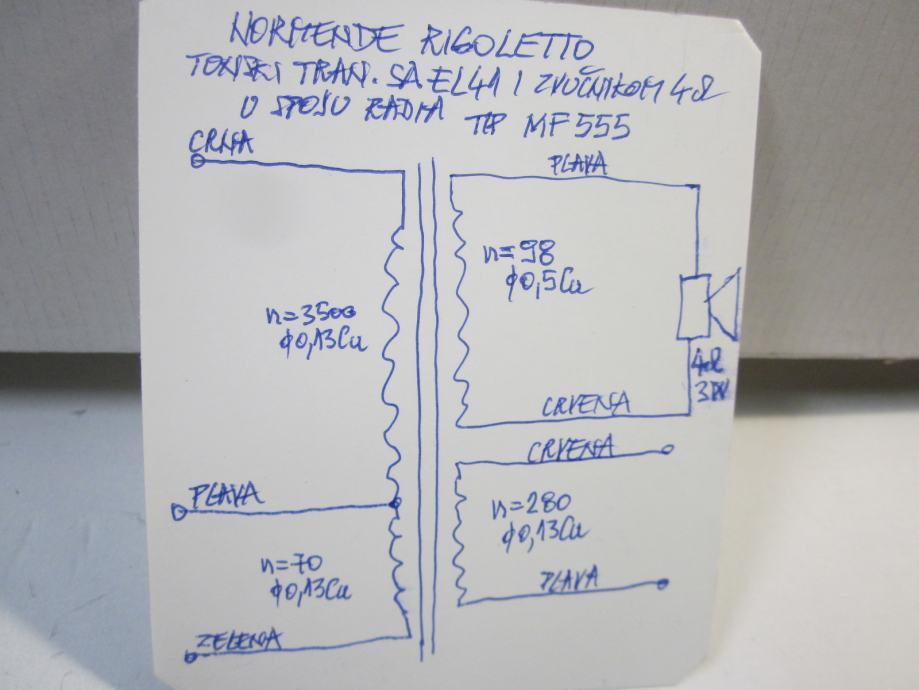 NORMENDE RIGOLETTO
TONSKI TRAN. SA EL41 I ZVUČNIKOM 4Ω
U SPOJU RADIA TIP MF555
CRNA
PLAVA
n=98
φ0,5Cu
n=3500
φ0,13Cu
4Ω
3W
CRVENA
CRVENA
PLAVA
n=280
φ0,13Cu
n=70
φ0,13Cu
PLAVA
ZELENA